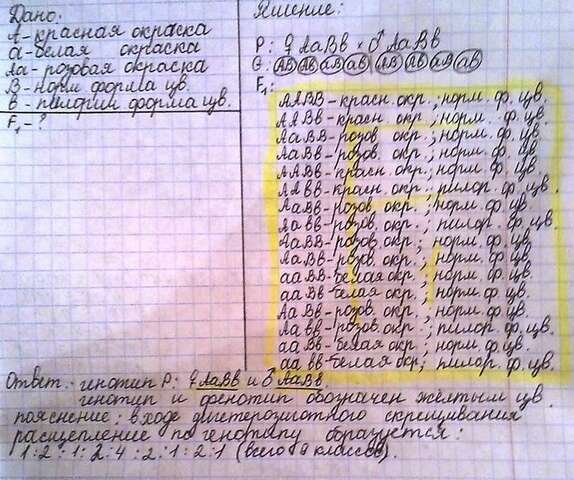 Дано:
А - красная окраска
а - белая окраска
Аа - розовая окраска
В - норм форма цв.
в - пилорич форма цв.
F₁ - ?
Решение:
P: ♀ АаВв × ♂ АаВв
G: АВ Ав аВ ав АВ Ав аВ ав
F₁:
ААВВ - красн. окр.; норм. ф. цв.
ААВв - красн. окр.; норм. ф. цв.
АаВВ - розов. окр.; норм. ф. цв.
АаВв - розов. окр.; норм. ф. цв.
ААВв - красн. окр.; норм. ф. цв.
ААвв - красн. окр.; пилор. ф. цв.
АаВв - розов. окр.; норм. ф. цв.
Аавв - розов. окр.; пилор. ф. цв.
АаВВ - розов. окр.; норм. ф. цв.
АаВв - розов. окр.; норм. ф. цв.
ааВВ - белая окр.; норм. ф. цв.
ааВв - белая окр.; норм. ф. цв.
АаВв - розов. окр.; норм. ф. цв.
Аавв - розов. окр.; пилор. ф. цв.
ааВв - белая окр.; норм. ф. цв.
аавв - белая окр.; пилор. ф. цв.
Ответ: генотип P: ♀ АаВв и ♂ АаВв.
генотип и фенотип обозначен жёлтым цв.
пояснение: в ходе дигетерозиготного скрещивания
расщепление по генотипу образуется:
1:2:1:2:4:2:1:2:1 (всего 9 классов).